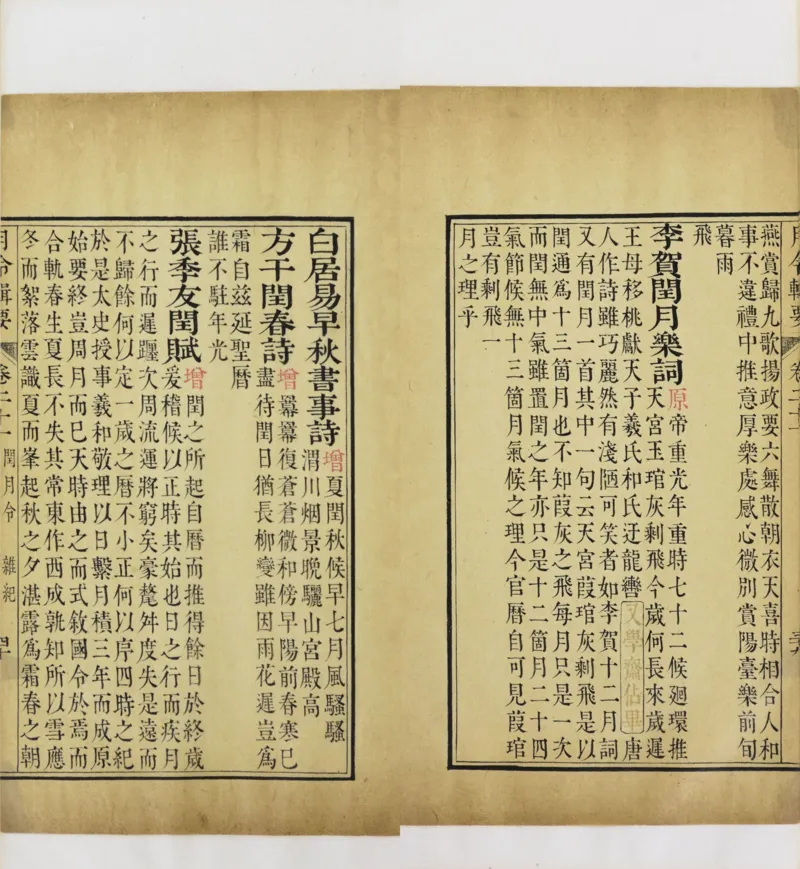 月令輯要 卷二十一
燕賞歸九歌揚政要六舞散朝衣天喜時相合人和
事不違禮中推意厚樂處感心微別賞陽臺樂前旬
暮雨
飛
李賀閏月樂詞 原 帝重光年重時七十二候廻環推
天宮玉琯灰剩飛今歲何長來歲遲
王母移桃獻天子羲氏和氏迂龍轡 又學齋佔畢 唐
人作詩雖巧麗然有淺陋可笑者如李賀十二月詞
又有閏月一首其中一句云天宮葭琯灰剩飛是以
閏通爲十三箇月也不知葭灰之飛每月只是一次
而閏無中氣雖置閏之年亦只是十二箇月二十四
氣節候無十三箇月氣候之理今官曆自可見葭琯
豈有剩飛一
月之理乎
白居易早秋書事詩 增 夏閏秋候早七月風騷騷
渭川烟景晚驪山宮殿高
方干閏春詩 增 羃羃復蒼蒼微和傍早陽前春寒已
盡待閏日猶長柳變雖因雨花遲豈爲
霜自茲延聖曆
誰不駐年光
張季友閏賦 增 閏之所起自曆而推得餘日於終歲
爰稽候以正時其始也日之行而疾月
之行而遲躔次周流運將窮矣豪氂舛度失是遠而
不歸餘何以定一歲之曆不小正何以序四時之紀
於是太史授事羲和敬理以日繫月積三年而成原
始要終豈周月而已天時由之而式敘國令於焉而
合軌春生夏長不失其常東作西成孰知所以雪應
冬而絮落雲識夏而峯起秋之夕湛露爲霜春之朝
月令輯要 卷二十一 閏月令 雜紀